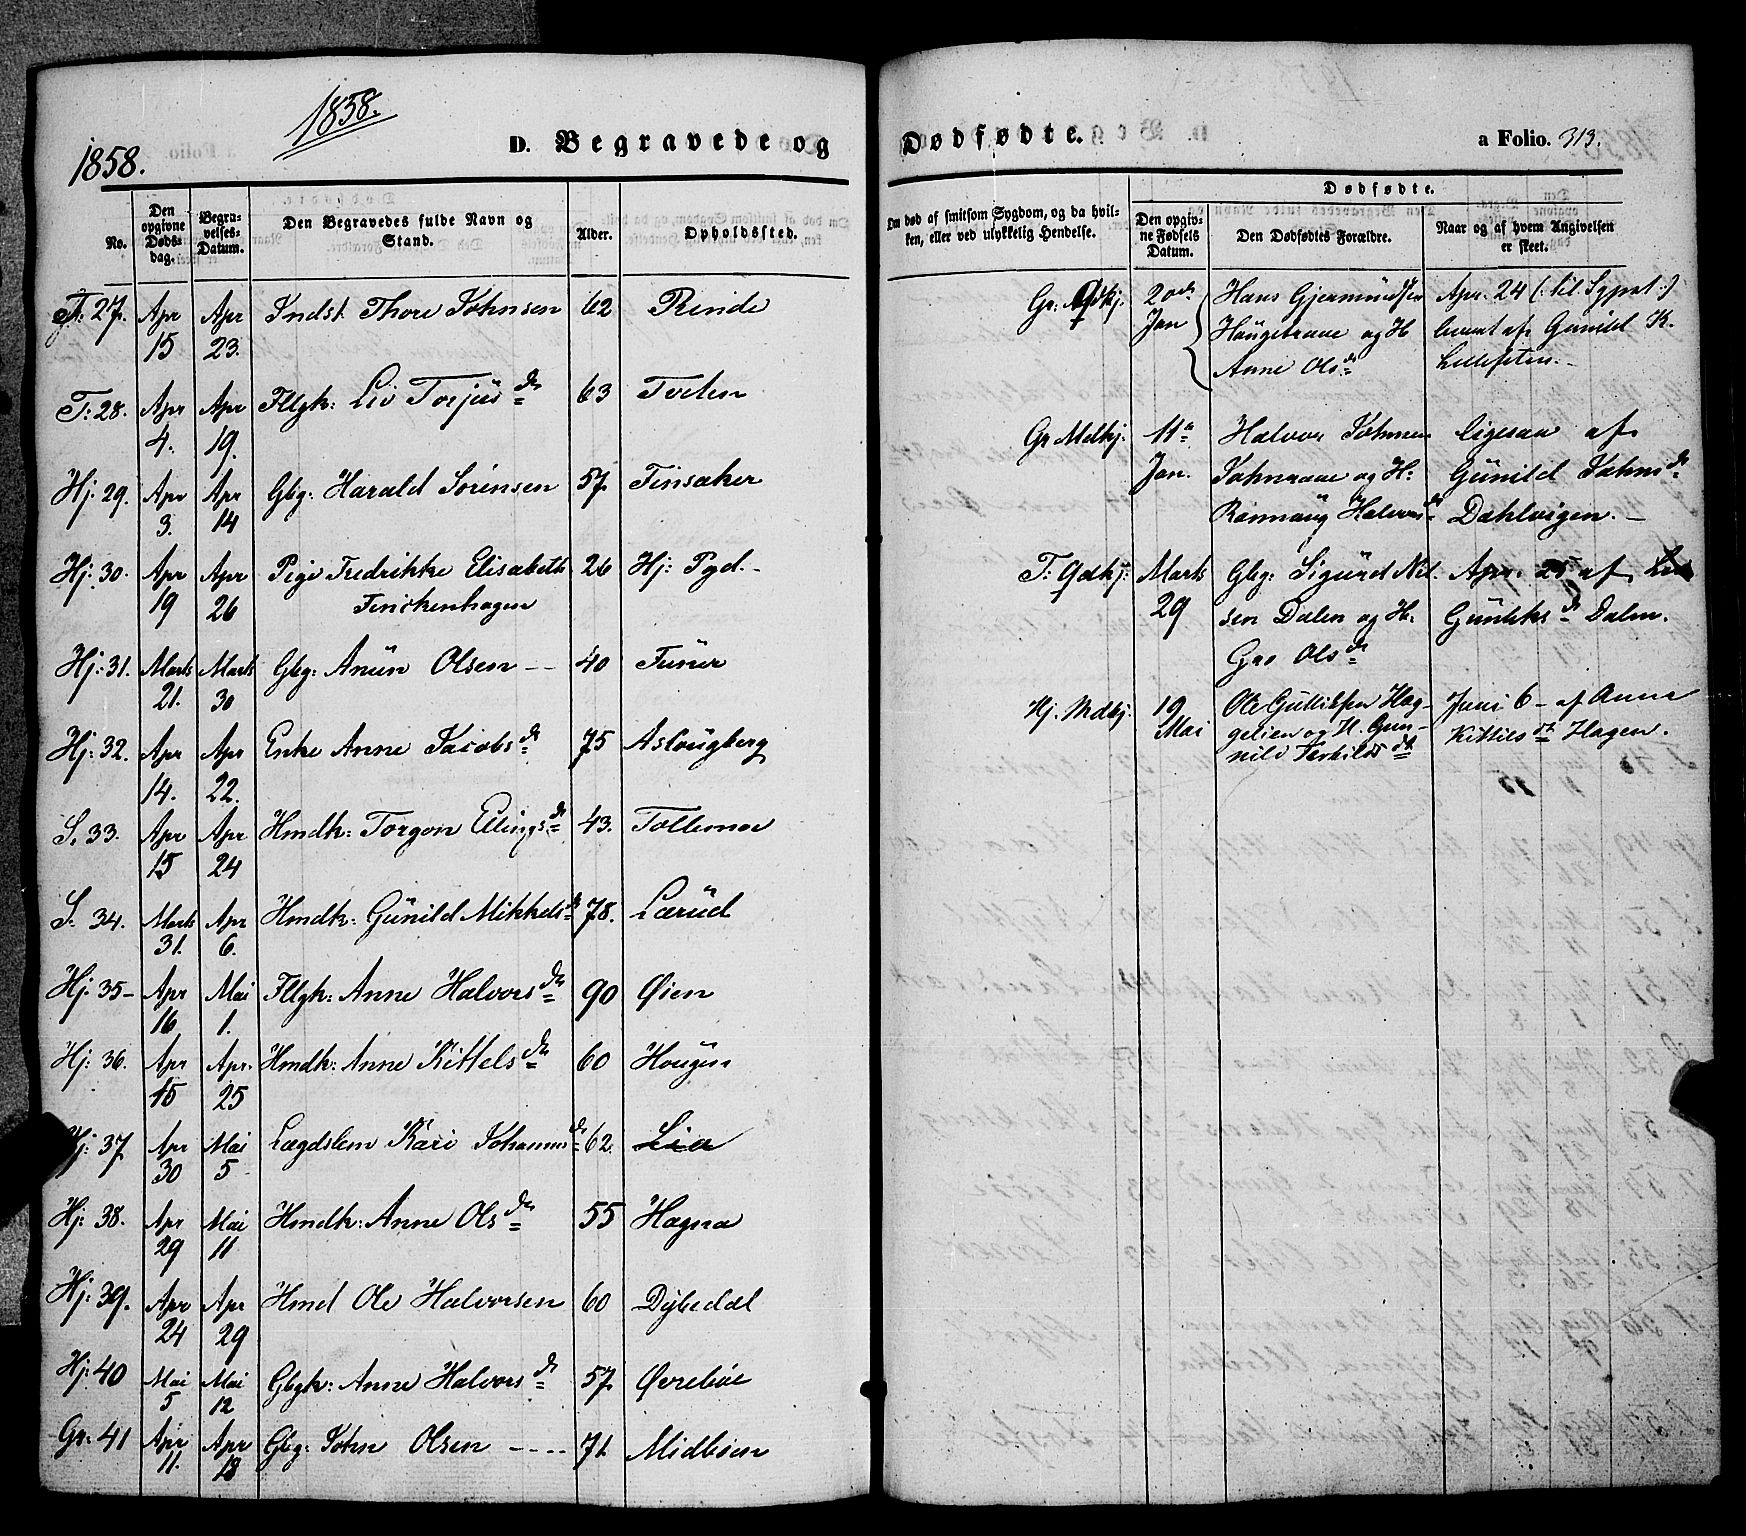 1858.
1858.
D. Begravede og
No.
Den opgivne Døds-dag.
Begra-velses-Datum.
Den Begravedes fulde Navn og Stand.
Alder.
Opholdssted.
T: 27. Apr 15 Apr 23. Indst Thore Johnsen 62 Rinde
T: 28. Apr 4. Apr 19. Fllgk: Liv Torjüs dr 63 Tveten
Hj: 29. Apr 3. Apr 14 Gbg: Harald Sørensen 57 Finsaker
Hj: 30. Apr 19 Apr 26 Pige Fredrikke Elisabeth 26 Hj: Pgd.
Finckenhagen
Hj: 31. Marts 21. Marts 30 Gbg: Anün Olsen 40 Funer
Hj: 32. Apr 14. Apr 22. Enke Anne Jacobs dr 75 Aslougberg
S. 33. Apr 15 Apr 24 Hmdk: Torgon Ellings dr 43. Tollemoe
S. 34. Marts 31. Apr 6. Hmdk: Günild Mikkels dr 78. Lærüd
Hj: 35 Apr 16 Mai 1. Fllgk: Anne Halvors dr 90 Øien
Hj: 36. Apr 15 Apr. 25 Hmdk: Anne Kittels dr 60 Hougen
Hj: 37 Apr 30 Mai 5 Lægdslem Kari Johannes dr 62. Lia
Hj: 38. Apr 29 Mai 11 Hmdk: Anne Ols dr 55 Hagna
Hj: 39. Apr 24 Apr 29 Hmd Ole Halvorsen 60 Dybedal
Hj: 40 Mai 5 Mai 12 Gbgk: Anne Halvors dr 57 Øvrebøe
Gr: 41 Apr 11. Apr 18 Gbg: John Olsen 71 Midbøen
Dødfødte.
a Folio. 313.
Om død af smitsom Sygdom, og da hvil-
ken, eller ved ulykkelig Hendelse.
Dødfødte.
Den opgiv-ne Fødsels Datum.
Den Dødfødtes Forældre.
Naar og af hvem Angivelsen er skeet.
Gr: Qdkj. 20de Jan Hans Gjermundsen Apr. 24 (: til Sgprst :)
Haugebraae og H
Anne Ols dr
Gr Mdkj. 11te Jan. Halvor Johnsen ligesaa af
og H: Günild Johns dr
Rannaug Halvors dr Dahlvigen.
T: Qdkj: Marts 29 Gbg: Sigürd Nil- Apr. 25 af
sen Dalen og H: Günleks dr Dalen.
Gro Ols dr
Hj. Mdkj. 19 Mai Ole Gulliksen Hag- Juni 6 af Anne
gelien og H. Gun- Kittils dr Hagen.
nild Terkilds dr